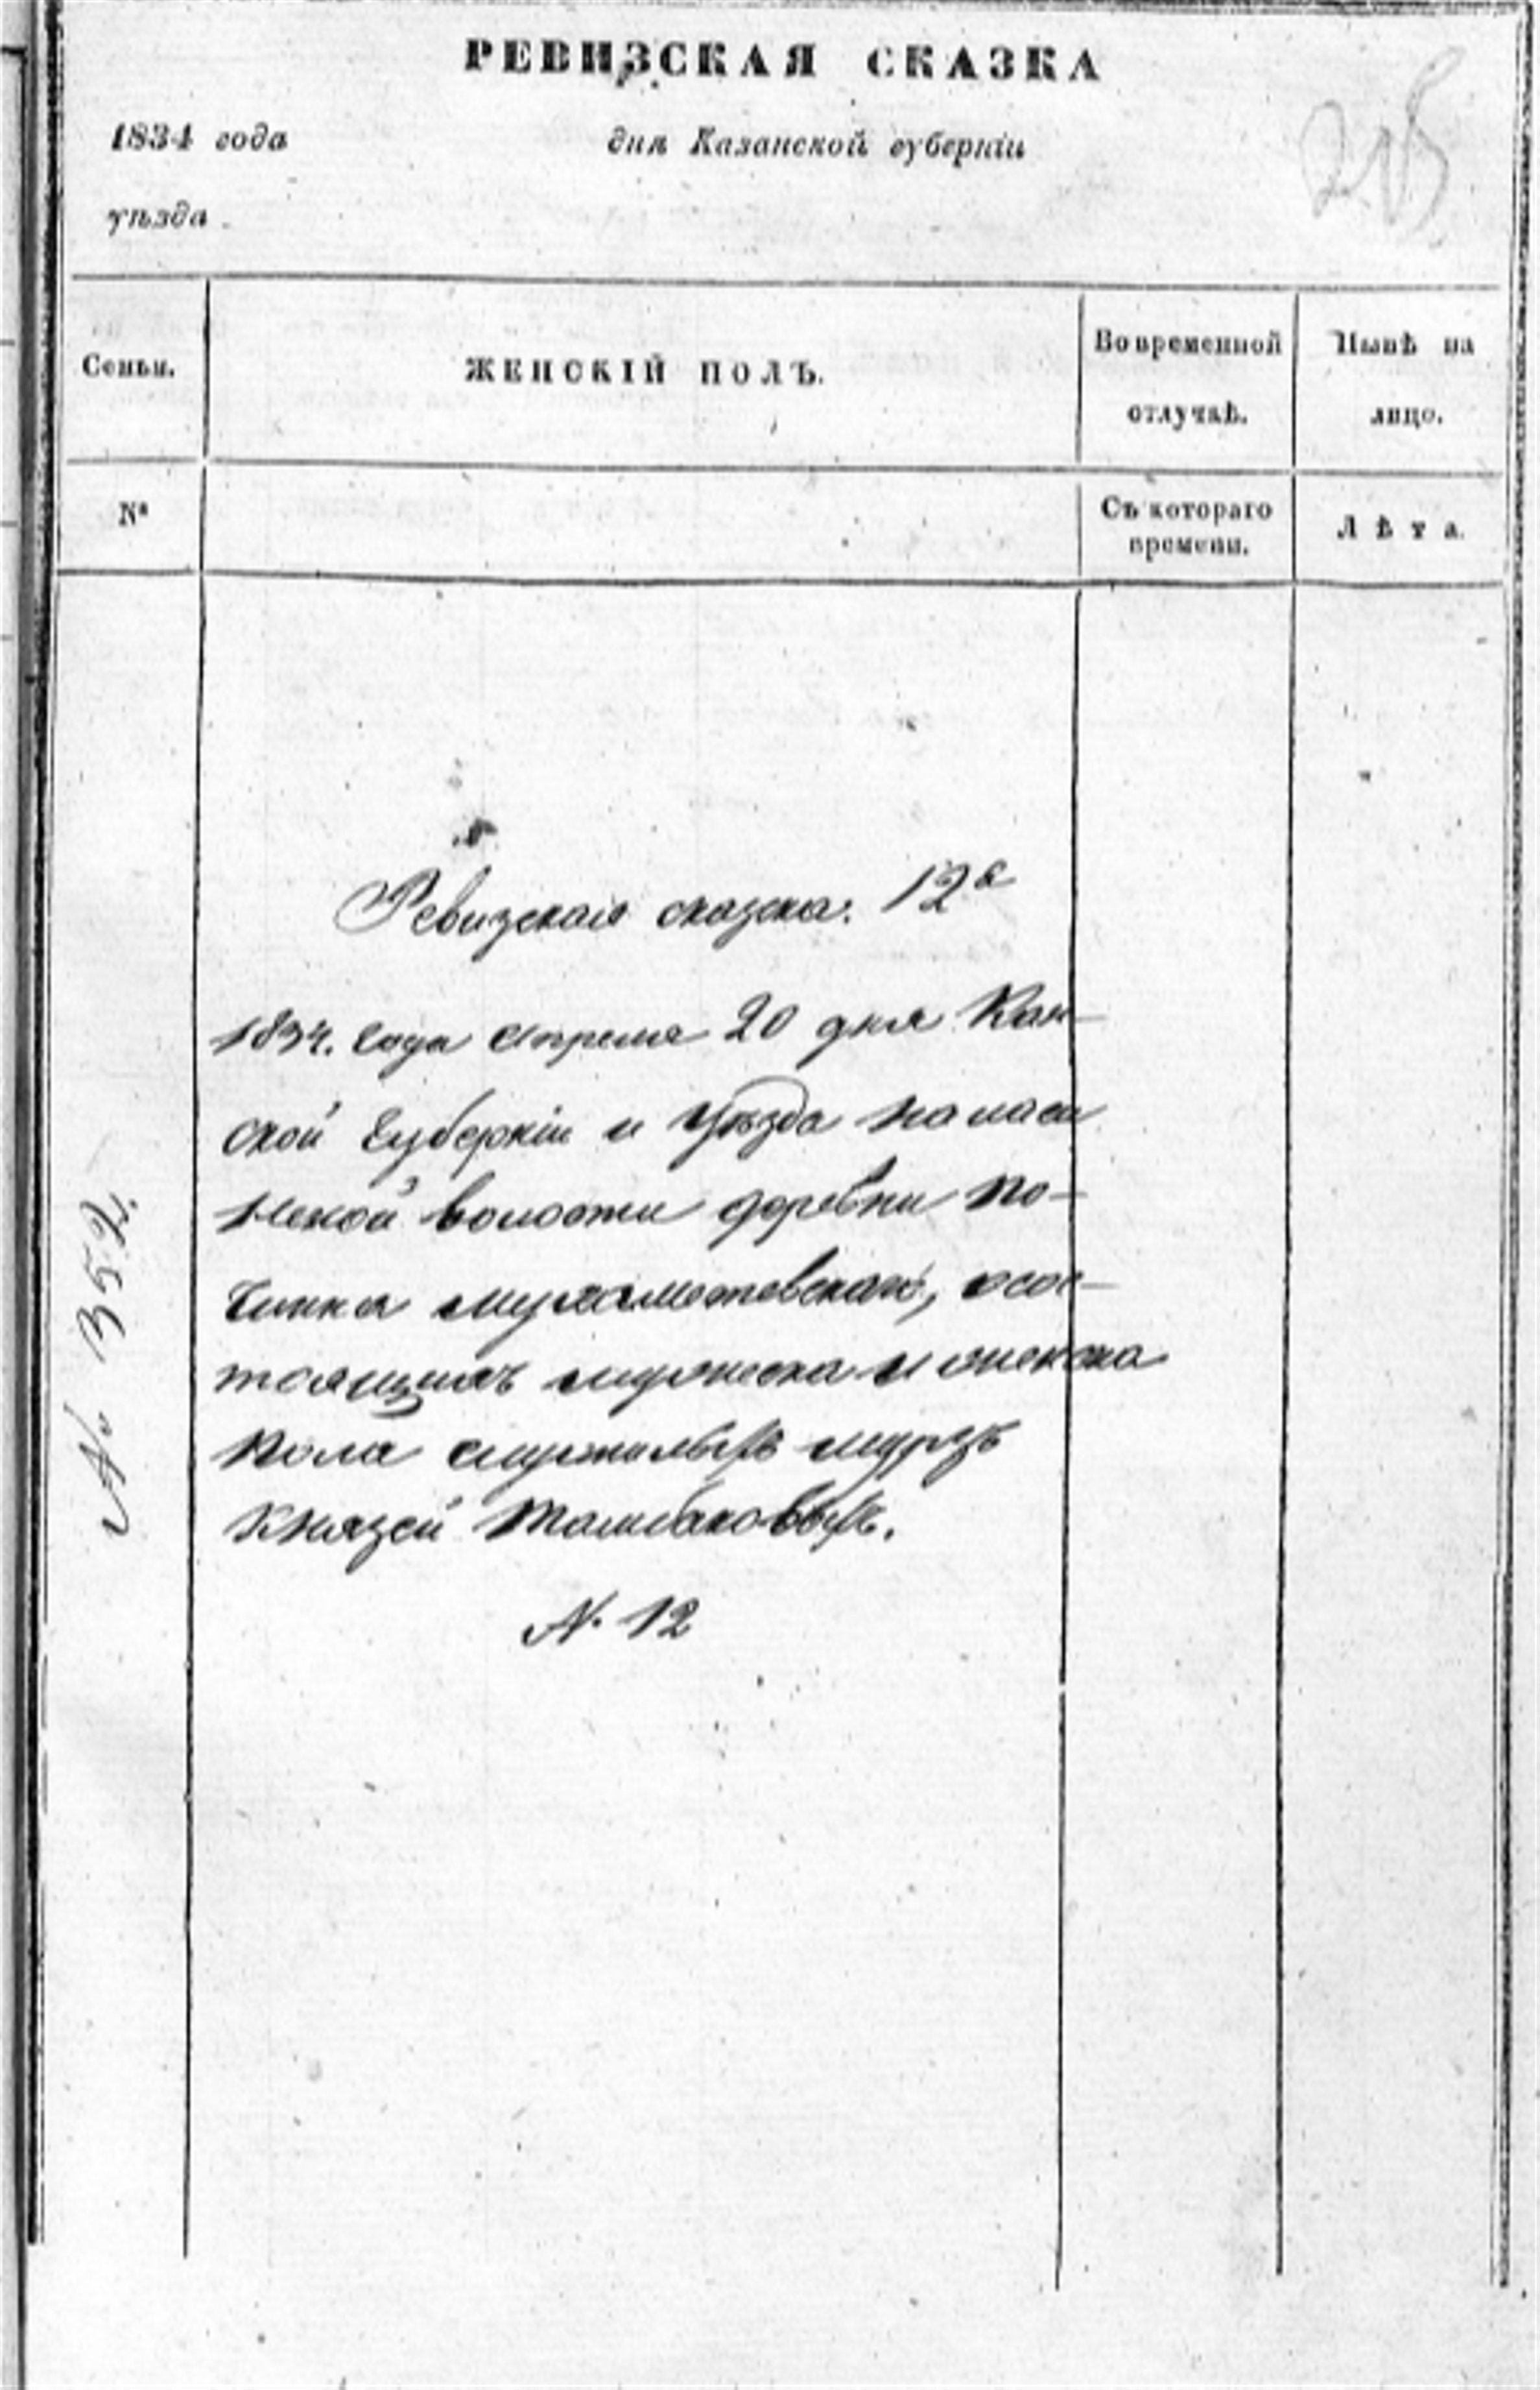 РЕВИЗСКАЯ СКАЗКА
1834 года дня Казанской губерніи
уѣзда
Семьи. ЖЕНСКІЙ ПОЛЪ. Во временной отлучкѣ. Нынѣ на лицо.
№ Съ котораго времени. Лѣта.
Ревизская сказка. 12я
1834. года апреля 20 дня Казан-
ской губерніи и уѣзда
волости деревни По-
чинка мухаметевскаго, осос-
тоящихъ мужеска и женска
пола служилыхъ мурзъ
князей
N. 12
№ 352.
215